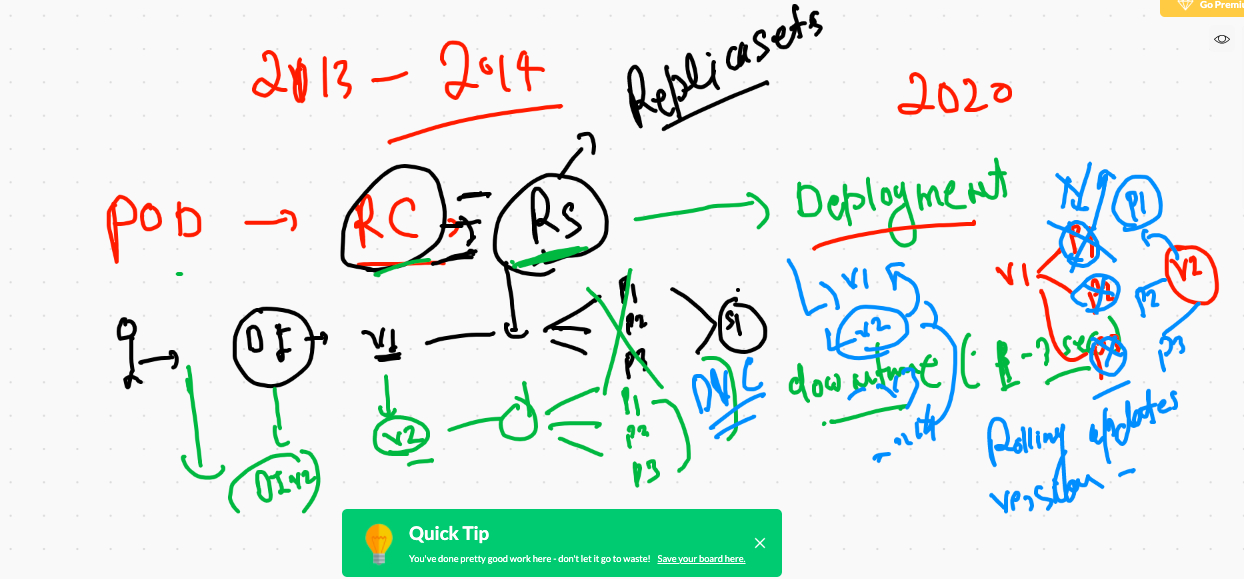 Go Premi
2013 - 2014
Replicasets
2020
POD → RC → RS → Deployment
P1
V1
P1
P2
P3
V2
P2
P3
DI → V1
P1
P2
P3
S1
V1
V2
downtime (1-3 sec)
DVC
V2
P1
P2
P3
DIV2
Rolling updates
version
Quick Tip
You've done pretty good work here - don't let it go to waste! Save your board here.